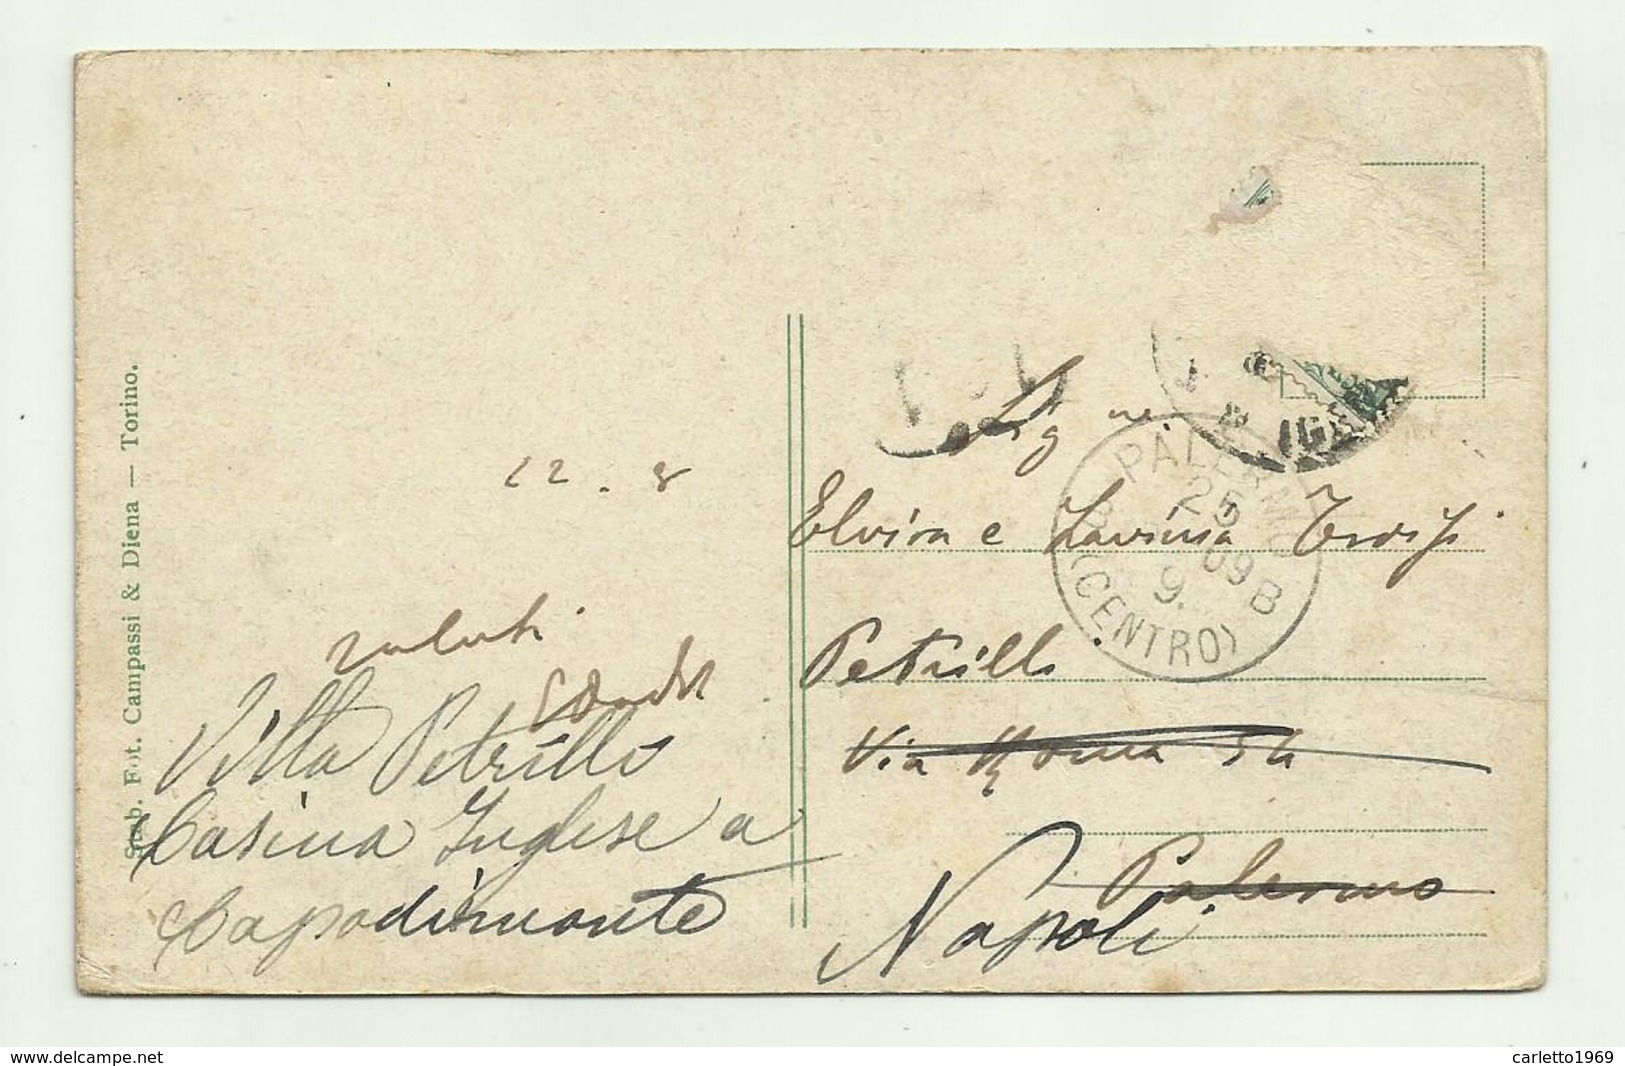 Stab. Fot. Campassi & Diena — Torino.
22.8
saluti
Villa Petrillo
Casina Inglese a
Capodimonte
Elvira e Lavinia
Petrillo
Via Roma 54
Palermo
Napoli
PALERMO
25
9.09 B
(CENTRO)
www.delcampe.net
carletto1969